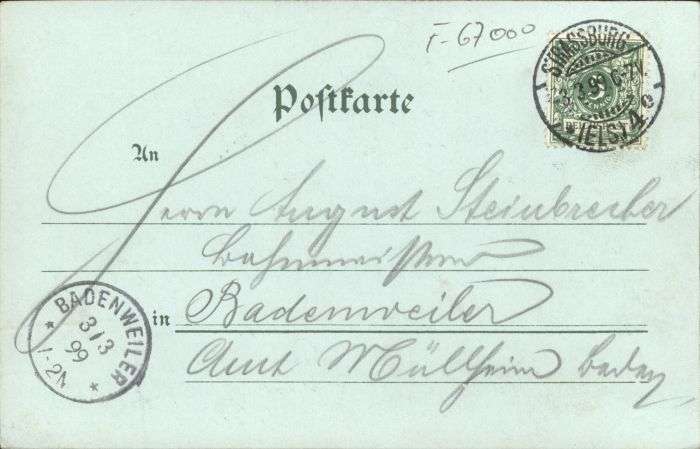 F-67000
STRASSBURG
3.3.99 6-7
* (ELS) 4 e
Postkarte
An
Herrn August Steinbrecher
Bahnmeister
in Badenweiler
Amt Müllheim Baden
* BADENWEILER *
3/3
99
1-2N